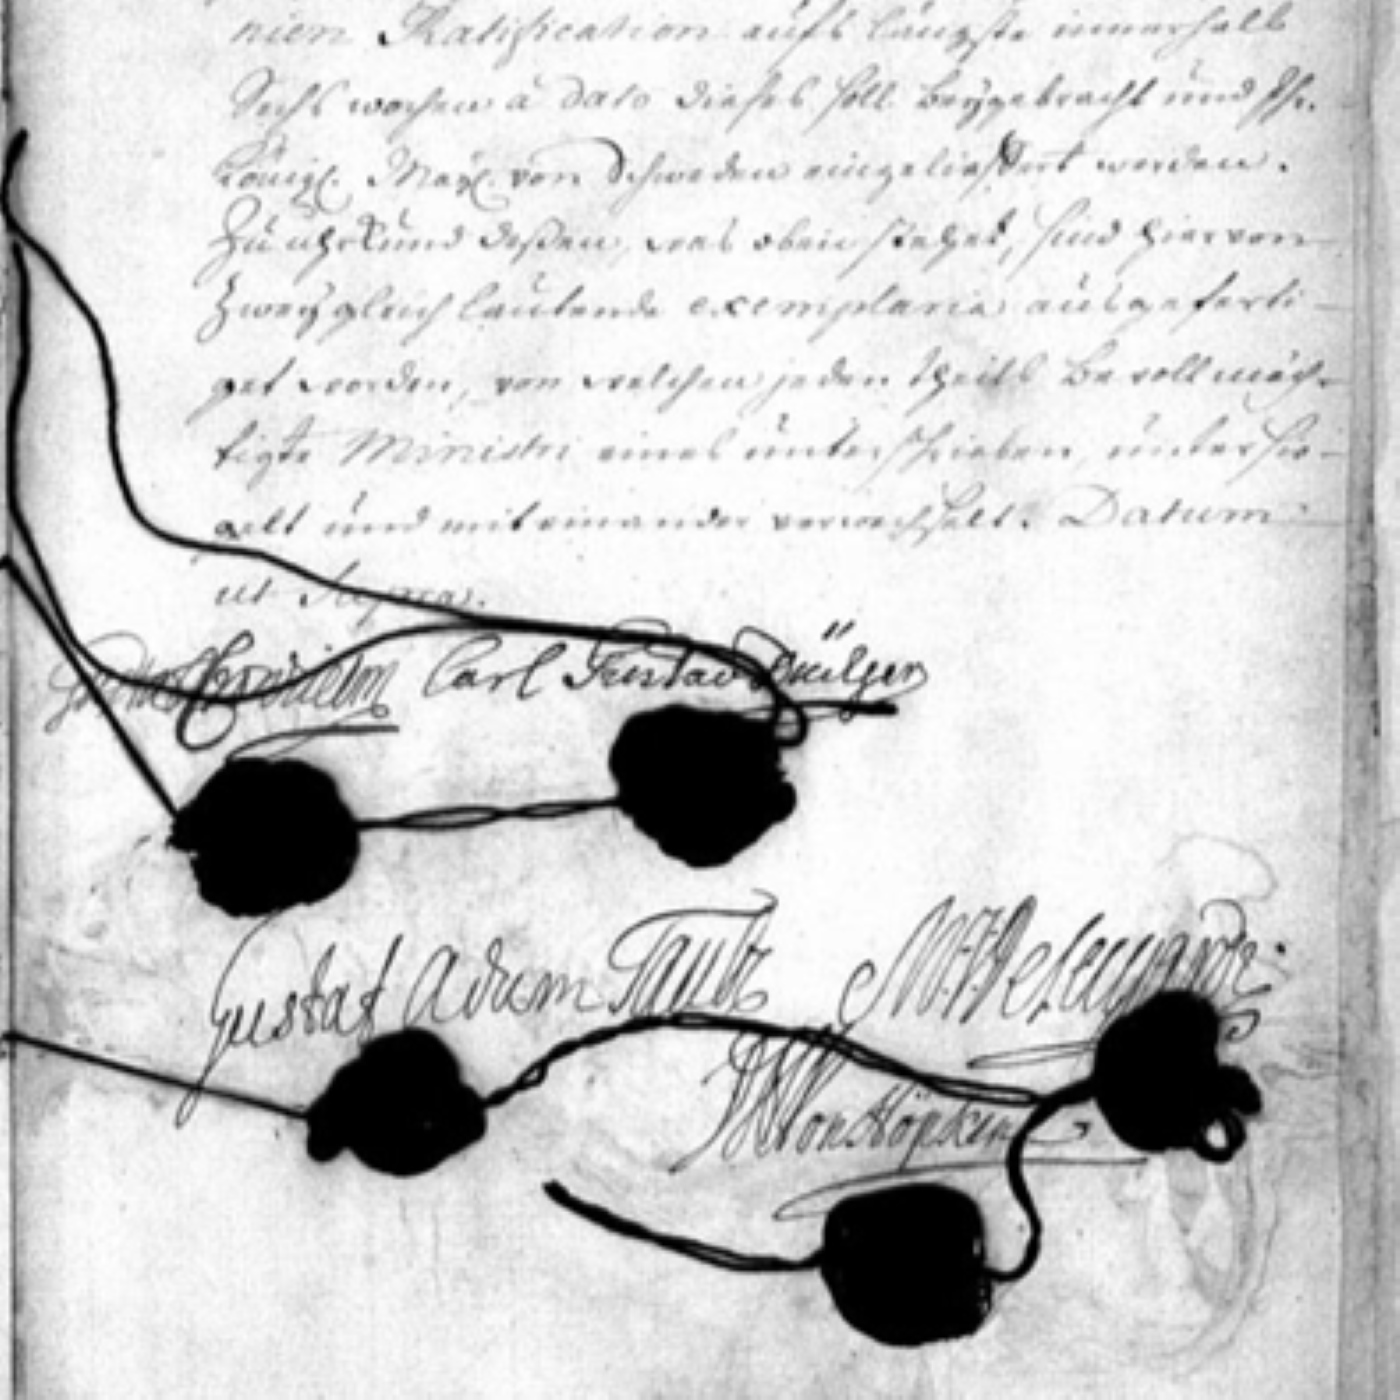 nien Ratification aufs längste innerhalb
Sechs wochen à dato dieses soll beygebracht und Ihr.
Königl. Mayt. von Schweden eingelieffert werden.
Zu uhrkund deßen, was oben stehet, sind hiervon
Zwey gleich lautende exemplaria ausgeferti-
get worden, von welchen jeden theils Bevollmäch-
tigte Ministri eines unterschrieben, untersie-
gelt und mit einander verwechselt. Datum
ut Supra.
Carl Gustav Düker
Gustaf Adam Taube
Von Höpken